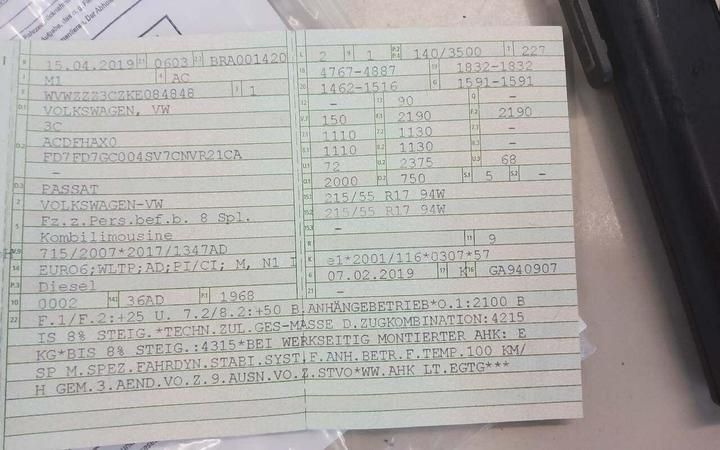 15.04.2019 0603 BRA001420
M1 AC
WVWZZZ3CZKE084848 1
VOLKSWAGEN, VW
3C
ACDFHAX0
FD7FD7GC004SV7CNVR21CA
–
PASSAT
VOLKSWAGEN-VW
Fz.z.Pers.bef.b. 8 Spl.
Kombilimousine
715/2007*2017/1347AD
EURO6;WLTP;AD;PI/CI; M, N1 I
Diesel
0002 36AD 1968
L 2 9 1 P.2 P.4 140/3500 T 227
4767-4887 1832-1832
1462-1516 1591-1591
– 90 –
150 2190 2190
1110 1130 –
1110 1130 –
72 2375 68
2000 750 5 –
215/55 R17 94W
215/55 R17 94W
–
R 11 9
K e1*2001/116*0307*57
6 07.02.2019 17 K 16 GA940907
21 –
22 F.1/F.2:+25 U. 7.2/8.2:+50 B.ANHÄNGEBETRIEB*O.1:2100 B
IS 8% STEIG.*TECHN.ZUL.GES-MASSE D.ZUGKOMBINATION:4215
KG*BIS 8% STEIG.:4315*BEI WERKSEITIG MONTIERTER AHK: E
SP M.SPEZ.FAHRDYN.STABI.SYST.F.ANH.BETR.F.TEMP.100 KM/
H GEM.3.AEND.VO.Z.9.AUSN.VO.Z.STVO*WW.AHK LT.EGTG***